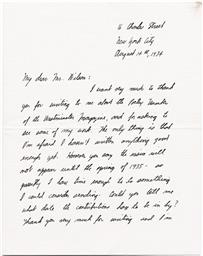 16 Charles Street
New York City
August 14th, 1934
My dear Mr. Nelson:
I want very much to thank
you for writing to me about the Poetry Number
of the Westminster Magazine, and for asking to
see some of my work. The only thing is that
I'm afraid I haven't written anything good
enough yet. However you say the issue will
not appear until the spring of 1935 - so
possibly I have time enough to do something
I could consider sending. Could you tell me
what date the contributions have to be in by?
Thank you very much for writing and I'm